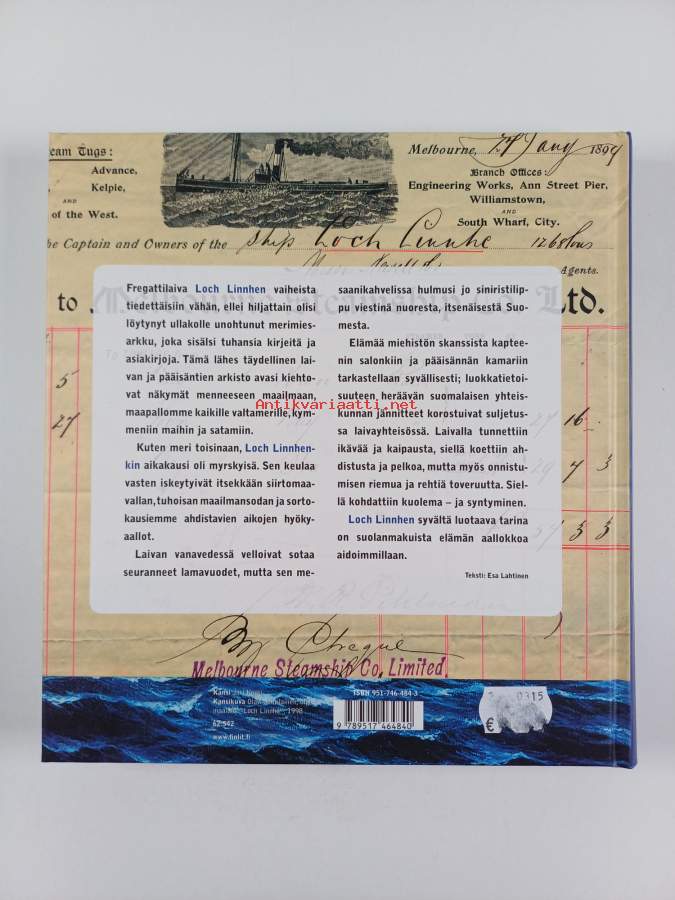 eam Tugs:
Advance,
Kelpie,
AND
of the West.
Melbourne, 27 Jany 1899
Branch Offices:
Engineering Works, Ann Street Pier,
Williamstown,
AND
South Wharf, City.
he Captain and Owners of the Ship Loch Linnhe 1268 tons
Agents.
to Melbourne Steamship Co. Ltd.
Fregattilaiva Loch Linnhen vaiheista
tiedettäisiin vähän, ellei hiljattain olisi
löytynyt ullakolle unohtunut merimies-
arkku, joka sisälsi tuhansia kirjeitä ja
asiakirjoja. Tämä lähes täydellinen lai-
van ja pääisäntien arkisto avasi kiehto-
vat näkymät menneeseen maailmaan,
maapallomme kaikille valtamerille, kym-
meniin maihin ja satamiin.
Kuten meri toisinaan, Loch Linnhen-
kin aikakausi oli myrskyisä. Sen keulaa
vasten iskeytyivät itsekkään siirtomaa-
vallan, tuhoisan maailmansodan ja sorto-
kausiemme ahdistavien aikojen hyöky-
aallot.
Laivan vanavedessä velloivat sotaa
seuranneet lamavuodet, mutta sen me-
saanikahvelissa hulmusi jo siniristilip-
pu viestinä nuoresta, itsenäisestä Suo-
mesta.
Elämää miehistön skanssista kaptee-
nin salonkiin ja pääisännän kamariin
tarkastellaan syvällisesti; luokkatietoi-
suuteen heräävän suomalaisen yhteis-
kunnan jännitteet korostuivat suljetus-
sa laivayhteisössä. Laivalla tunnettiin
ikävää ja kaipausta, siellä koettiin ah-
distusta ja pelkoa, mutta myös onnistu-
misen riemua ja rehtiä toveruutta. Siel-
lä kohdattiin kuolema – ja syntyminen.
Loch Linnhen syvältä luotaava tarina
on suolanmakuista elämän aallokkoa
aidoimmillaan.
Teksti: Esa Lahtinen
Antikvariaatti.net
5
27
16
4 3
3 3
By Cheque
Melbourne Steamship Co. Limited.
Kansi
Kansikuva
Loch Linnhe, 1998
62.542
www.finlit.fi
ISBN 951-746-484-3
9 789517 464840
0315
€